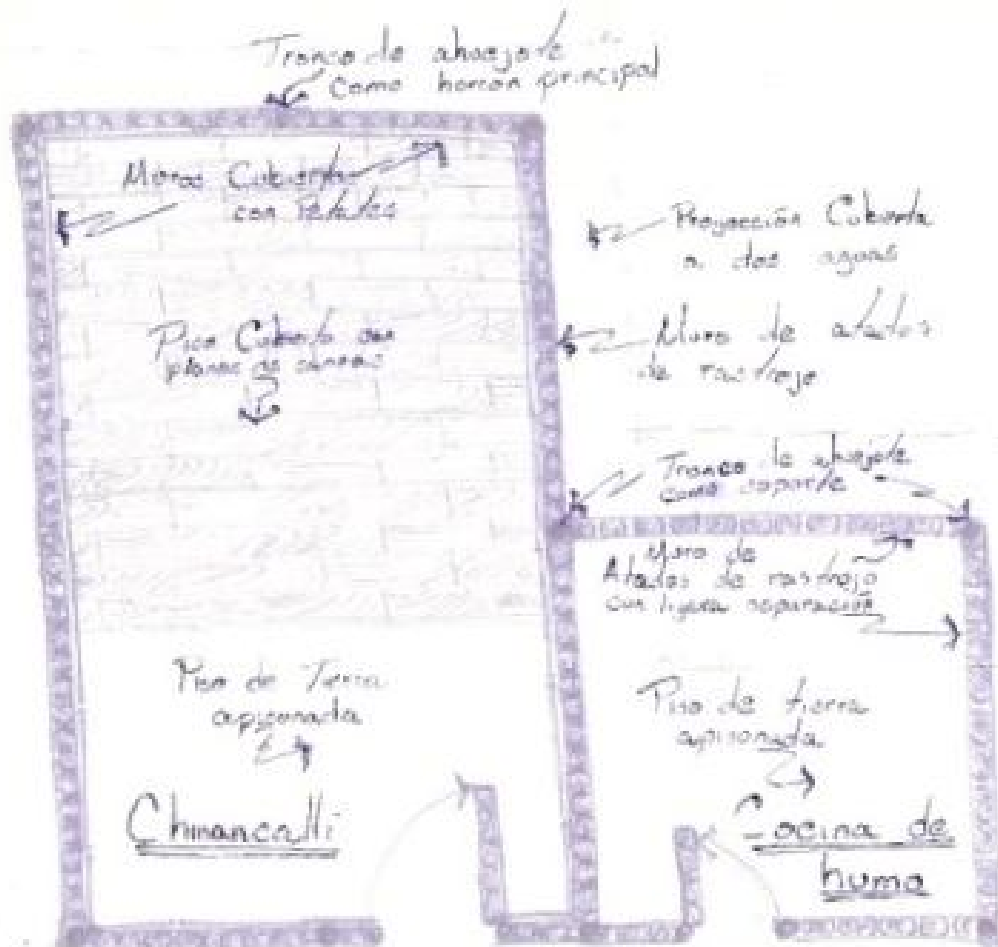 Tronco de ahuejote
como horcon principal
Muros Cubiertos
con Petates
Proyección Cubierta
a dos aguas
Piso Cubierto con
Muro de atados
de rastrojo
Tronco de ahuejote
como soporte
Muro de
Atados de rastrojo
con ligera separación
Piso de Tierra
apisonada
Piso de tierra
apisonada
Chinancalli
Cocina de
humo